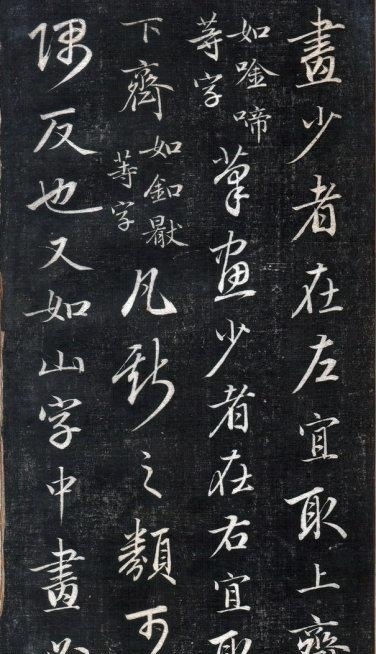 畫少者在左宜取上齊
如唫啼
等字
筆畫少者在右宜取
下齊
如釦㽅
等字
凡斯之類可
隅反也又如山字中畫